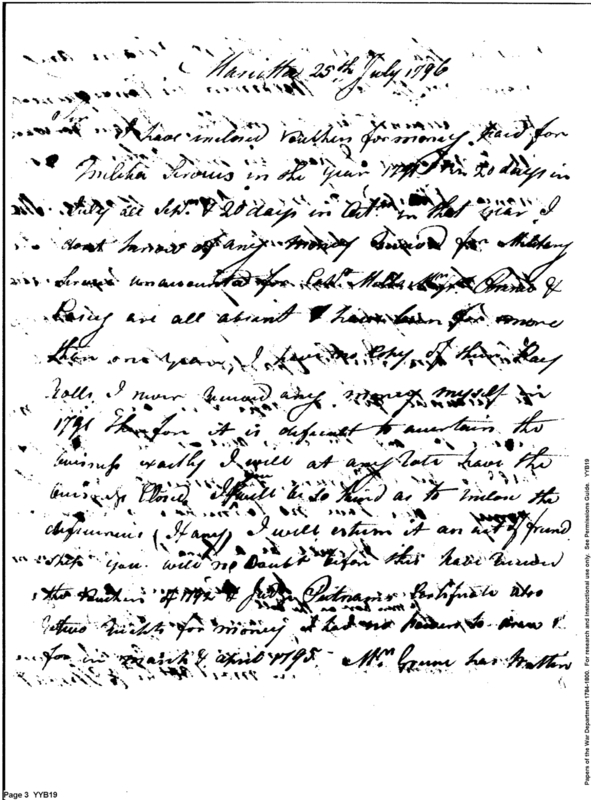 Marietta 25th July 1796
Sir
I have inclosed Vouchers for money paid for
Militia Services in the Year 1791 20 days in
July all Sepr. & 20 days in Octr. in that year I
dont know of any money Received for Military
Service unaccounted for Capt. &
are all absent & have been for more
than one year, I have no Copy of their Pay
Rolls I never Received any money myself in
1791 Therefore it is dificult to asertain the
buisness exactly I will at any rate have the
buis Closed If you will be so kind as to inclose the
deficiencies (If any) I will esteem it an act of friend
ship you will no doubt before this have Received
the Vouchers of 1792 & Judge Putnams Certificate also
two for money I had no
for in march & april 1795 Mr. Greene has Written
Page 3 YYB19
Papers of the War Department 1784-1800. For research and instructional use only. See Permissions Guide. YYB19